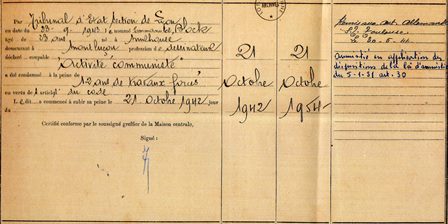 Par Tribunal d'Etat Section de Lyon
en date du 23-9-1942 le nommé Bloch
agé de 23 ans né à Mulhouse
demeurant à Montluçon profession de dessinateur
déclaré coupable "Activité communiste"
a été condamné à la peine de
12 ans de travaux forcés
en vertu de l'article du code
Le dit a commencé à subir sa peine le 21 octobre 1942 jour
d
Certifié conforme par le soussigné greffier de la Maison centrale,
Signé :
21
Octobre
1942
21
Octobre
1954
aut. Allemandes
Toulouse
amnistié en application des
dispositions de la loi d'amnistie
du 5-1-51 art. 30